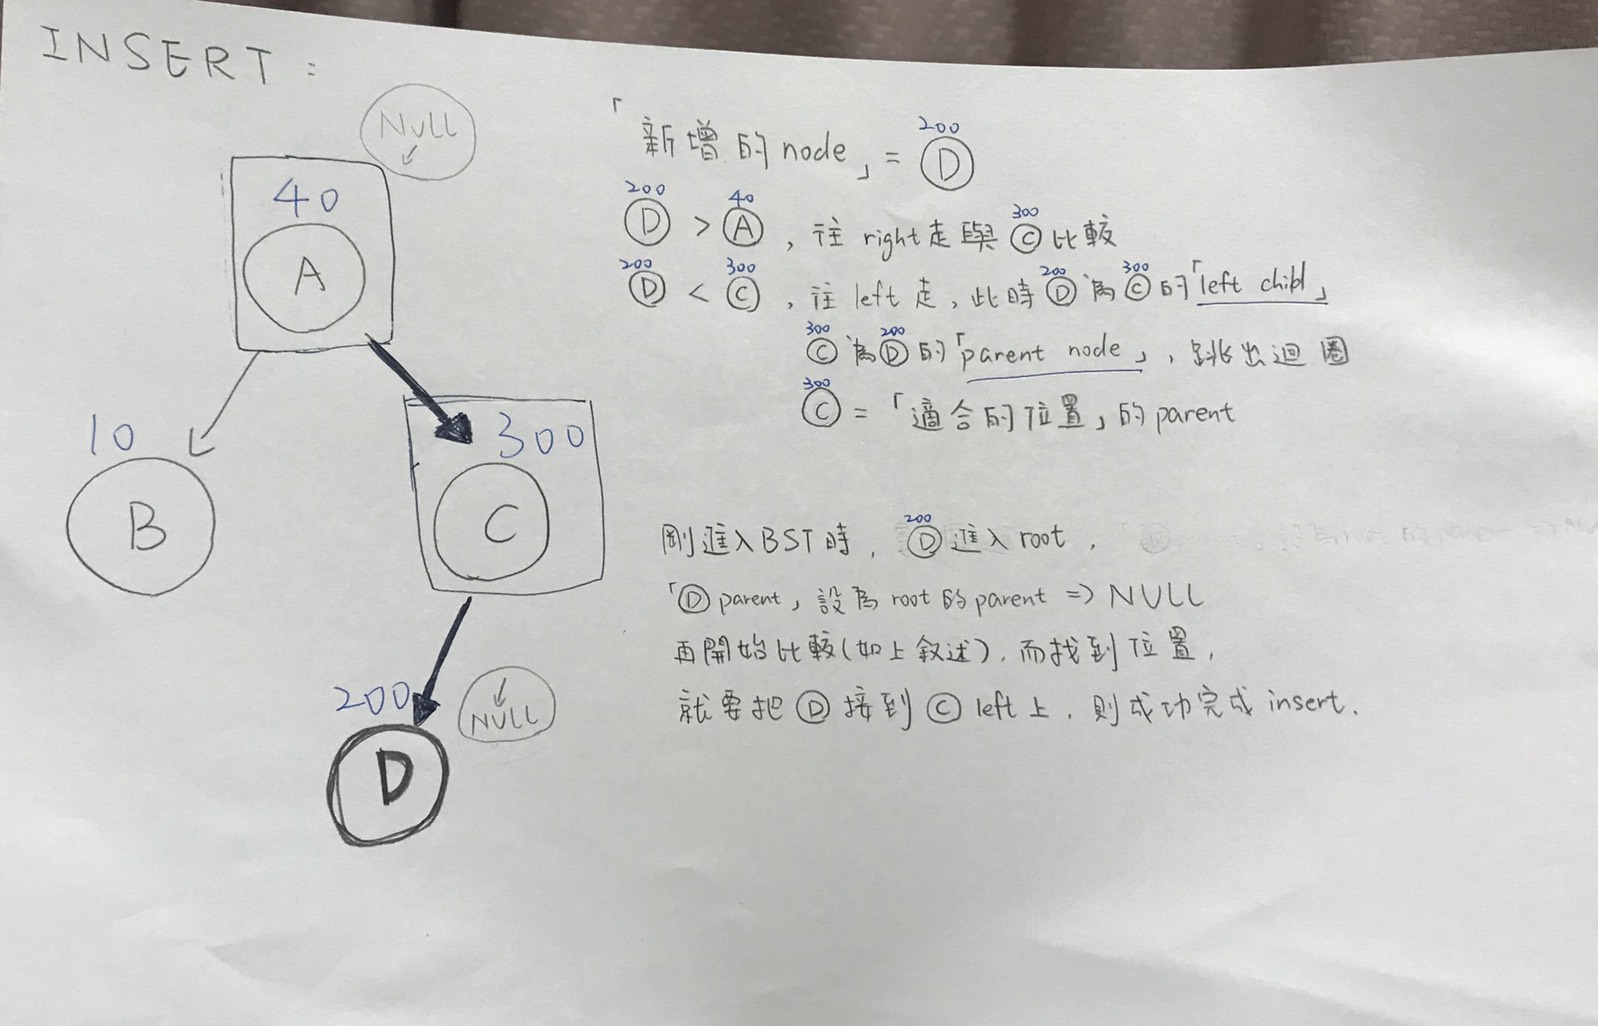 INSERT :
NULL
40
A
10
B
300
C
200
D
NULL
「新增的node」= Ⓓ 200
200 Ⓓ > 40 Ⓐ , 往 right 走與 300 Ⓒ 比較
200 Ⓓ < 300 Ⓒ , 往 left 走, 此時 200 Ⓓ 為 300 Ⓒ 的「left child」
300 Ⓒ 為 200 Ⓓ 的「parent node」, 跳出迴圈
300 Ⓒ = 「適合的位置」的 parent
剛進入BST時, 200 Ⓓ 進入 root,
「Ⓓ parent」設為 root 的 parent => NULL
再開始比較(如上敘述), 而找到位置,
就要把 Ⓓ 接到 Ⓒ left 上, 則成功完成 insert.